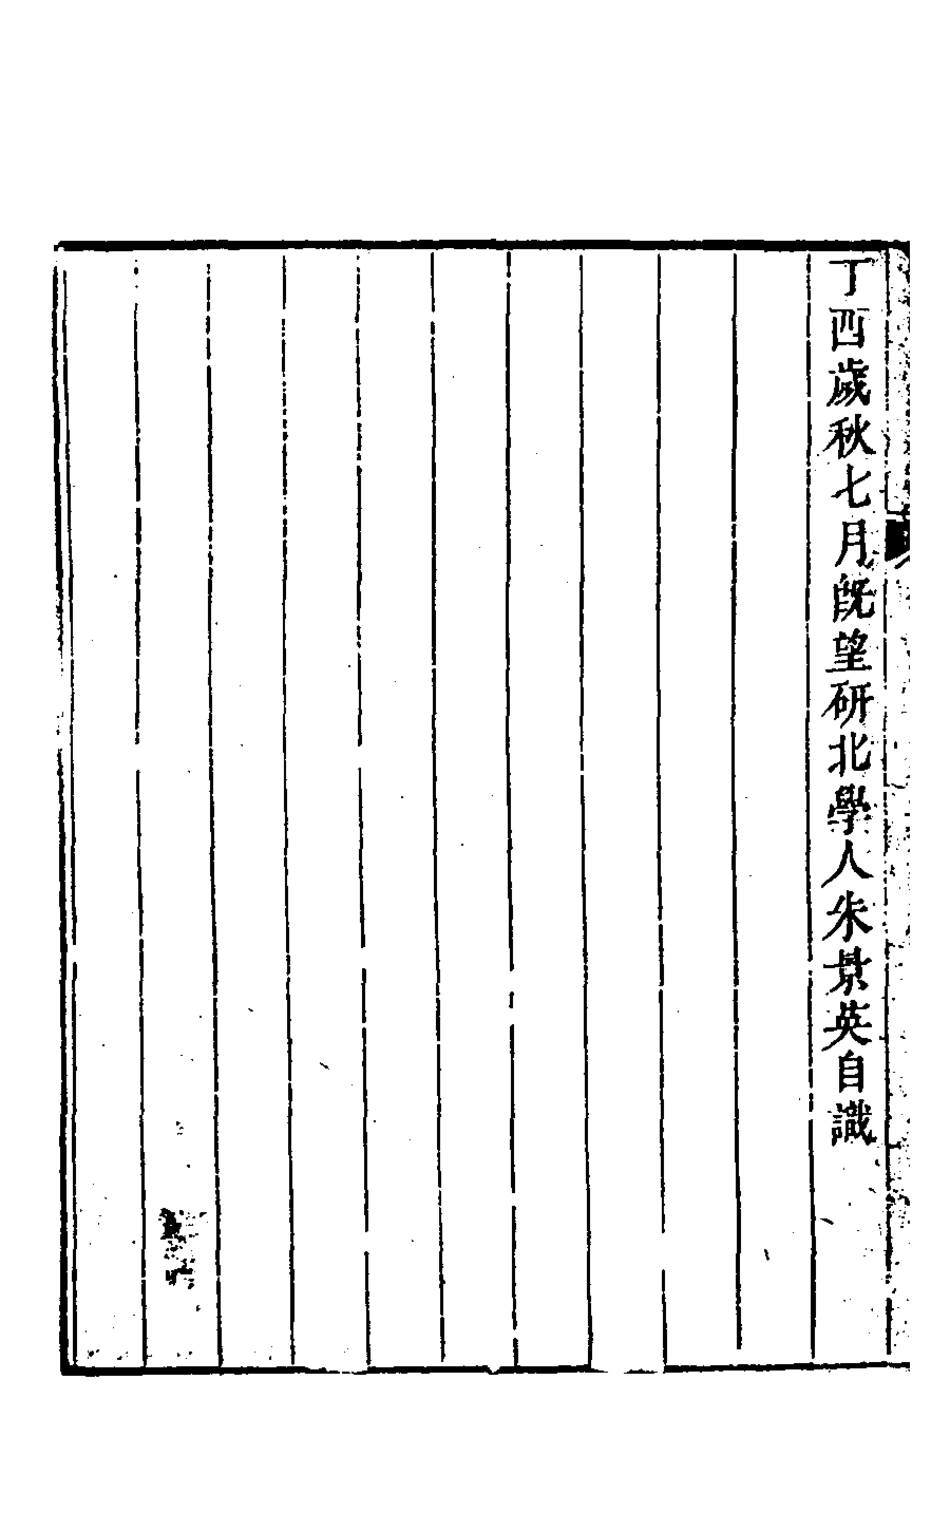 丁酉歲秋七月旣望研北學人朱景英自識